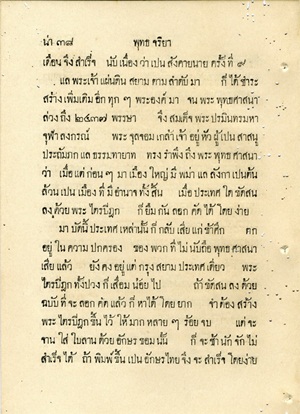 น่า ๓๘ พุทธ จริยา
เดือน จึ่ง สำเร็จ นับ เนื่อง ว่า เปน สังคายนาย ครั้ง ที่ ๙
แล พระเจ้า แผ่นดิน สยาม ตาม ลำดับ มา ก็ ได้ ชำระ
สร้าง เพิ่มเติม อีก ทุก ๆ พระองค์ มา จน พระ พุทธ ศาสนา
ล่วง ถึง ๒๔๓๗ พรรษา จึ่ง สมเด็จ พระ ปรมินทรมหา
จุฬา ลงกรณ์ พระ จุลจอม เกล้า เจ้า อยู่ หัว ผู้ เปน สาสนู
ประถัมภก แล ธรรมทายาท ทรง รำพึง ถึง พระ พุทธ ศาสนา
ว่า เมื่อ แต่ ก่อน ๆ มา เมือง ใหญ่ มี พม่า แล ลังกา เปนต้น
ล้วน เปน เมือง ที่ มี อำนาจ ทั้ง สิ้น เมื่อ ประเทศ ใด ขัดสน
ลง ด้วย พระ ไตรปิฎก ก็ ยืม กัน ลอก คัด ได้ โดย ง่าย
มา บัดนี้ ประเทศ เหล่านั้น ก็ กลับ เสีย แก่ ข้าศึก ตก
อยู่ ใน ความ ปกครอง ของ พวก ที่ ไม่ นับถือ พุทธ ศาสนา
เสีย แล้ว ยัง คง อยู่ แต่ กรุง สยาม ประเทศ เดียว พระ
ไตรปิฎก ทั้งปวง ก็ เสื่อม น้อย ไป ถ้า ขัดสน ลง ด้วย
ฉบับ ที่ จะ ลอก คัด แล้ว ก็ หา ได้ โดย ยาก จำ ต้อง สร้าง
พระ ไตรปิฎก ขึ้น ไว้ ให้ มาก หลาย ๆ ร้อย จบ แต่ จะ
จาน ใส่ ใบลาน ด้วย อักษร ขอม นั้น ก็ จะ ช้า นัก จัก ไม่
สำเร็จ ได้ ถ้า พิมพ์ ขึ้น เปน อักษร ไทย จึ่ง จะ สำเร็จ โดยง่าย